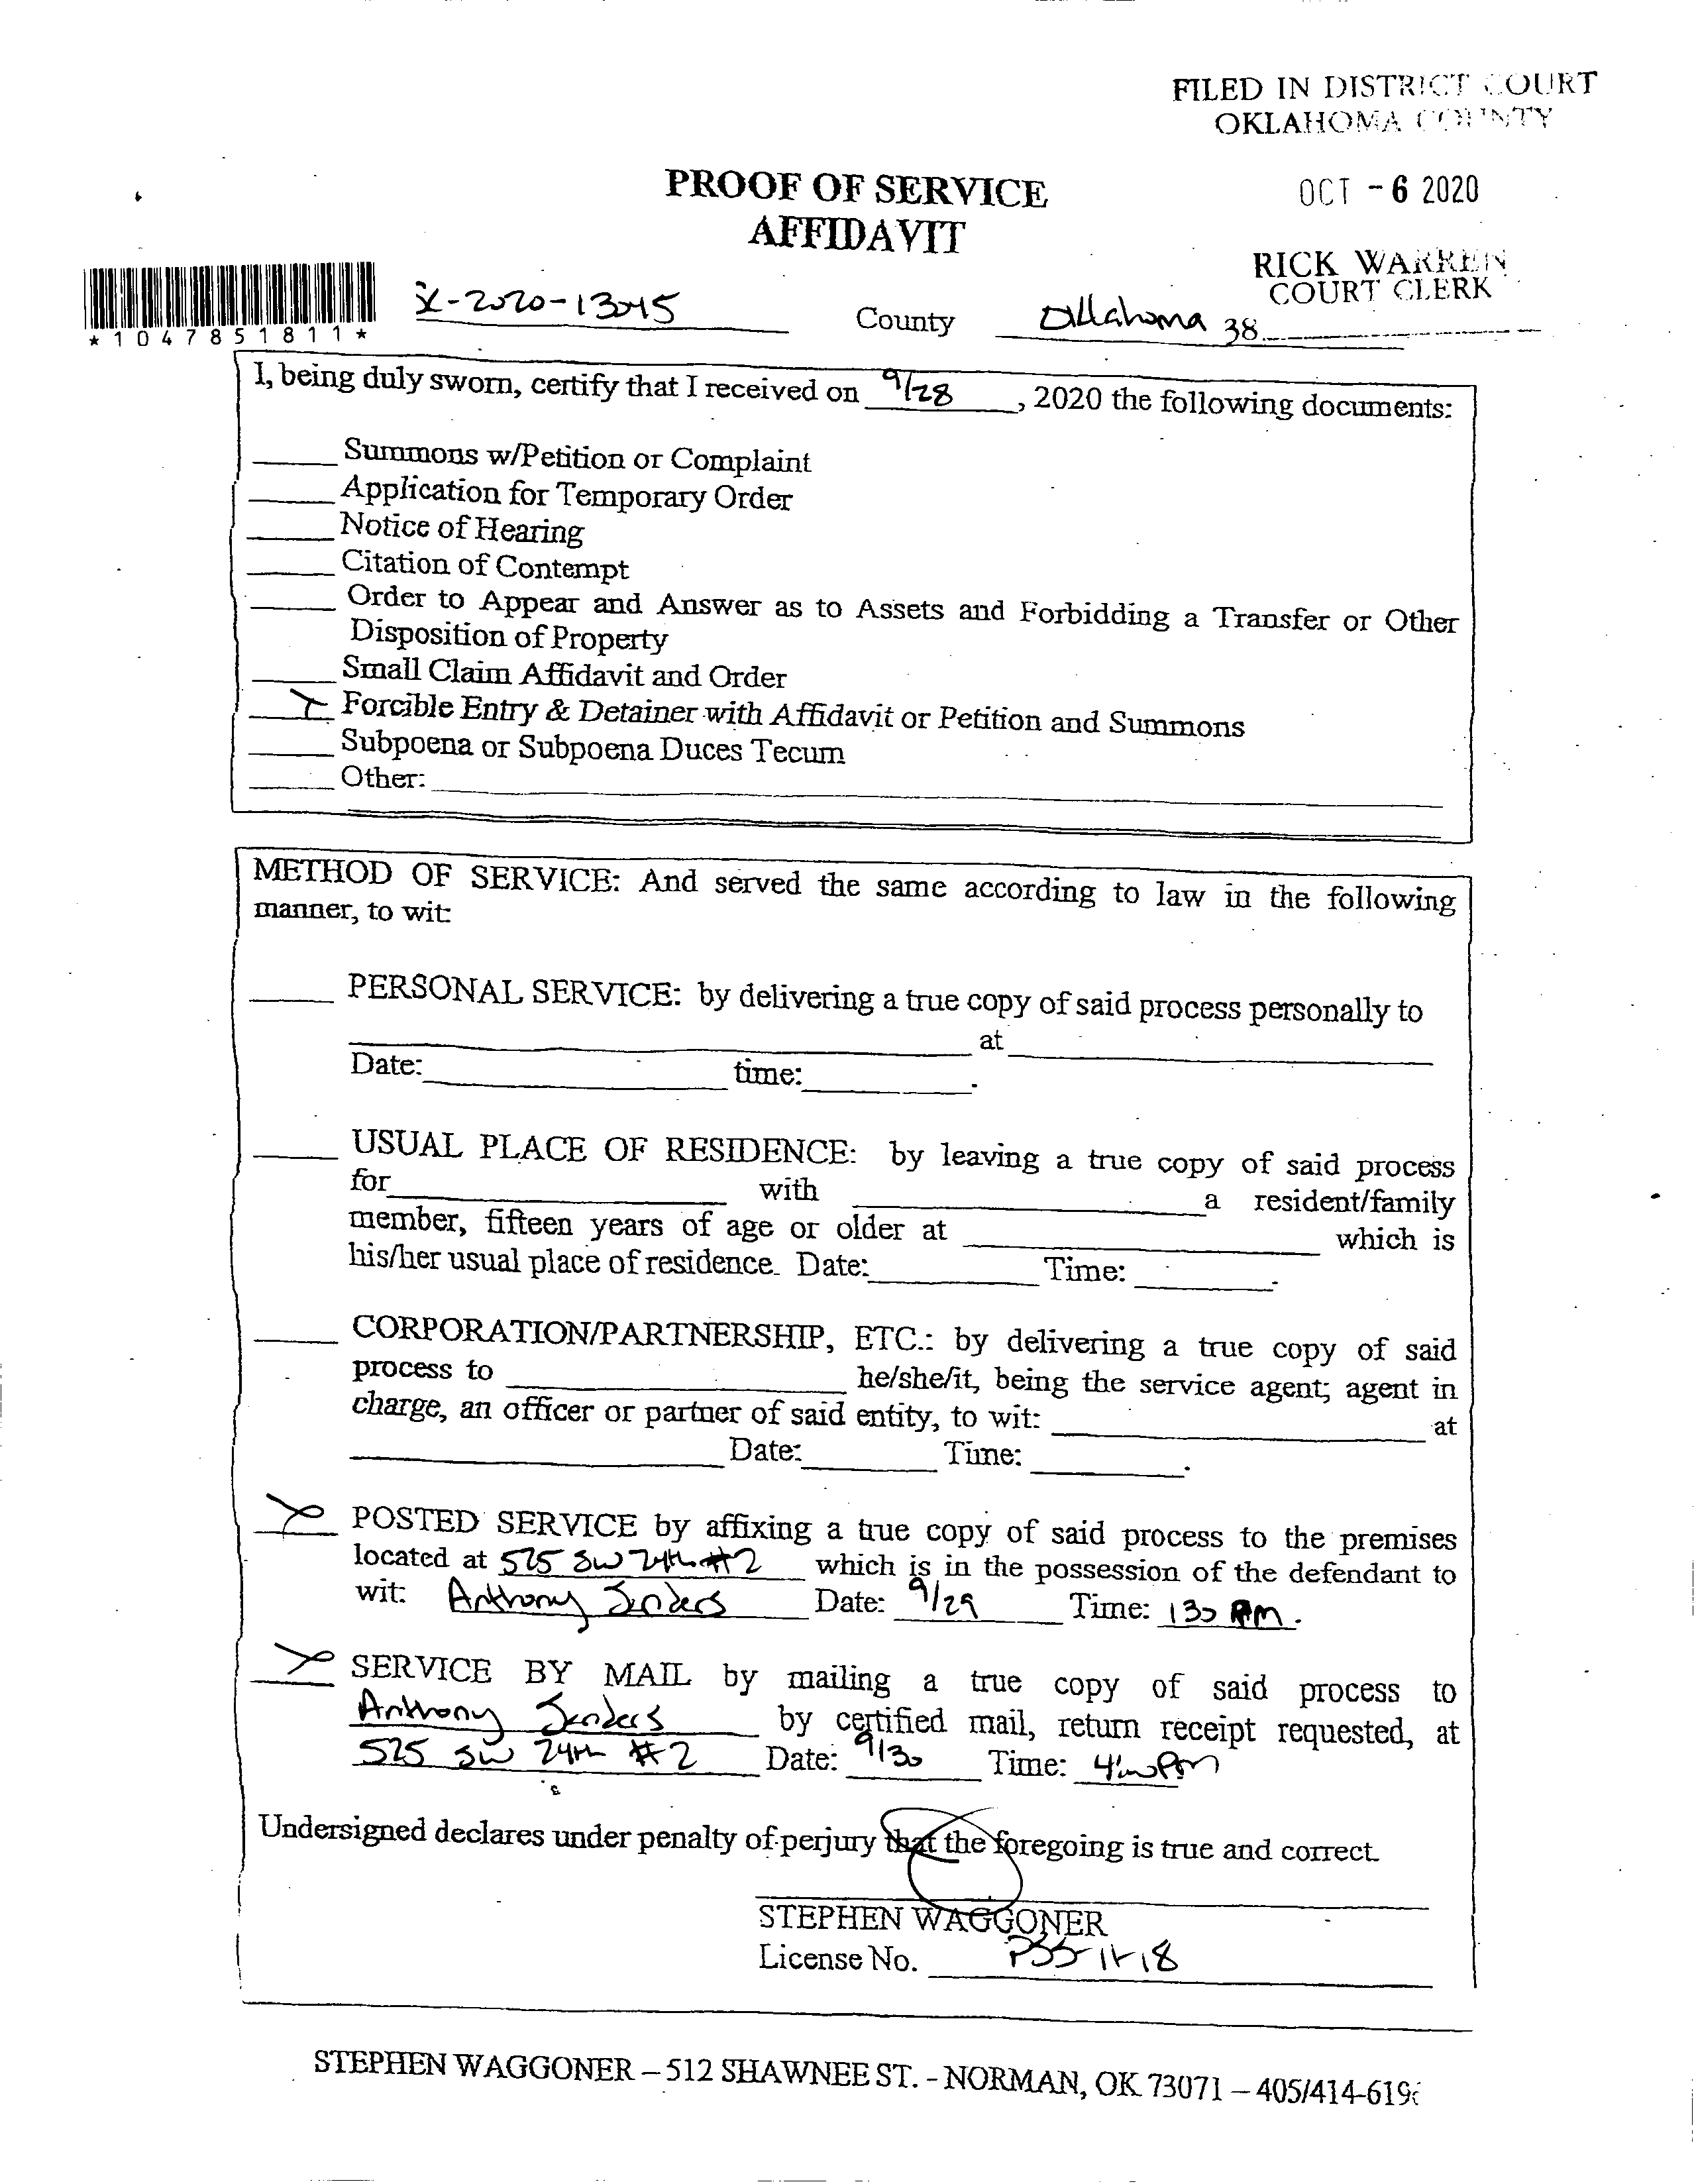 FILED IN DISTRICT COURT
OKLAHOMA COUNTY
PROOF OF SERVICE
AFFIDAVIT
OCT - 6 2020
RICK WARREN
COURT CLERK
*1047851811*
County Oklahoma 38
I, being duly sworn, certify that I received on 9/28, 2020 the following documents:
Summons w/Petition or Complaint
Application for Temporary Order
Notice of Hearing
Citation of Contempt
Order to Appear and Answer as to Assets and Forbidding a Transfer or Other
Disposition of Property
Small Claim Affidavit and Order
Forcible Entry & Detainer with Affidavit or Petition and Summons
Subpoena or Subpoena Duces Tecum
Other:
METHOD OF SERVICE: And served the same according to law in the following
manner, to wit:
PERSONAL SERVICE: by delivering a true copy of said process personally to
at
Date: time: .
USUAL PLACE OF RESIDENCE: by leaving a true copy of said process
for with a resident/family
member, fifteen years of age or older at which is
his/her usual place of residence. Date: Time: .
CORPORATION/PARTNERSHIP, ETC.: by delivering a true copy of said
process to he/she/it, being the service agent; agent in
charge, an officer or partner of said entity, to wit: at
Date: Time: .
POSTED SERVICE by affixing a true copy of said process to the premises
located at 525 SW 24th #2 which is in the possession of the defendant to
wit: Anthony Date: 9/29 Time: 130 PM.
SERVICE BY MAIL by mailing a true copy of said process to
Anthony by certified mail, return receipt requested, at
525 SW 24th #2 Date: 9/30 Time: PM
Undersigned declares under penalty of perjury that the foregoing is true and correct.
STEPHEN WAGGONER
License No.
STEPHEN WAGGONER – 512 SHAWNEE ST. - NORMAN, OK 73071 – 405/414-619